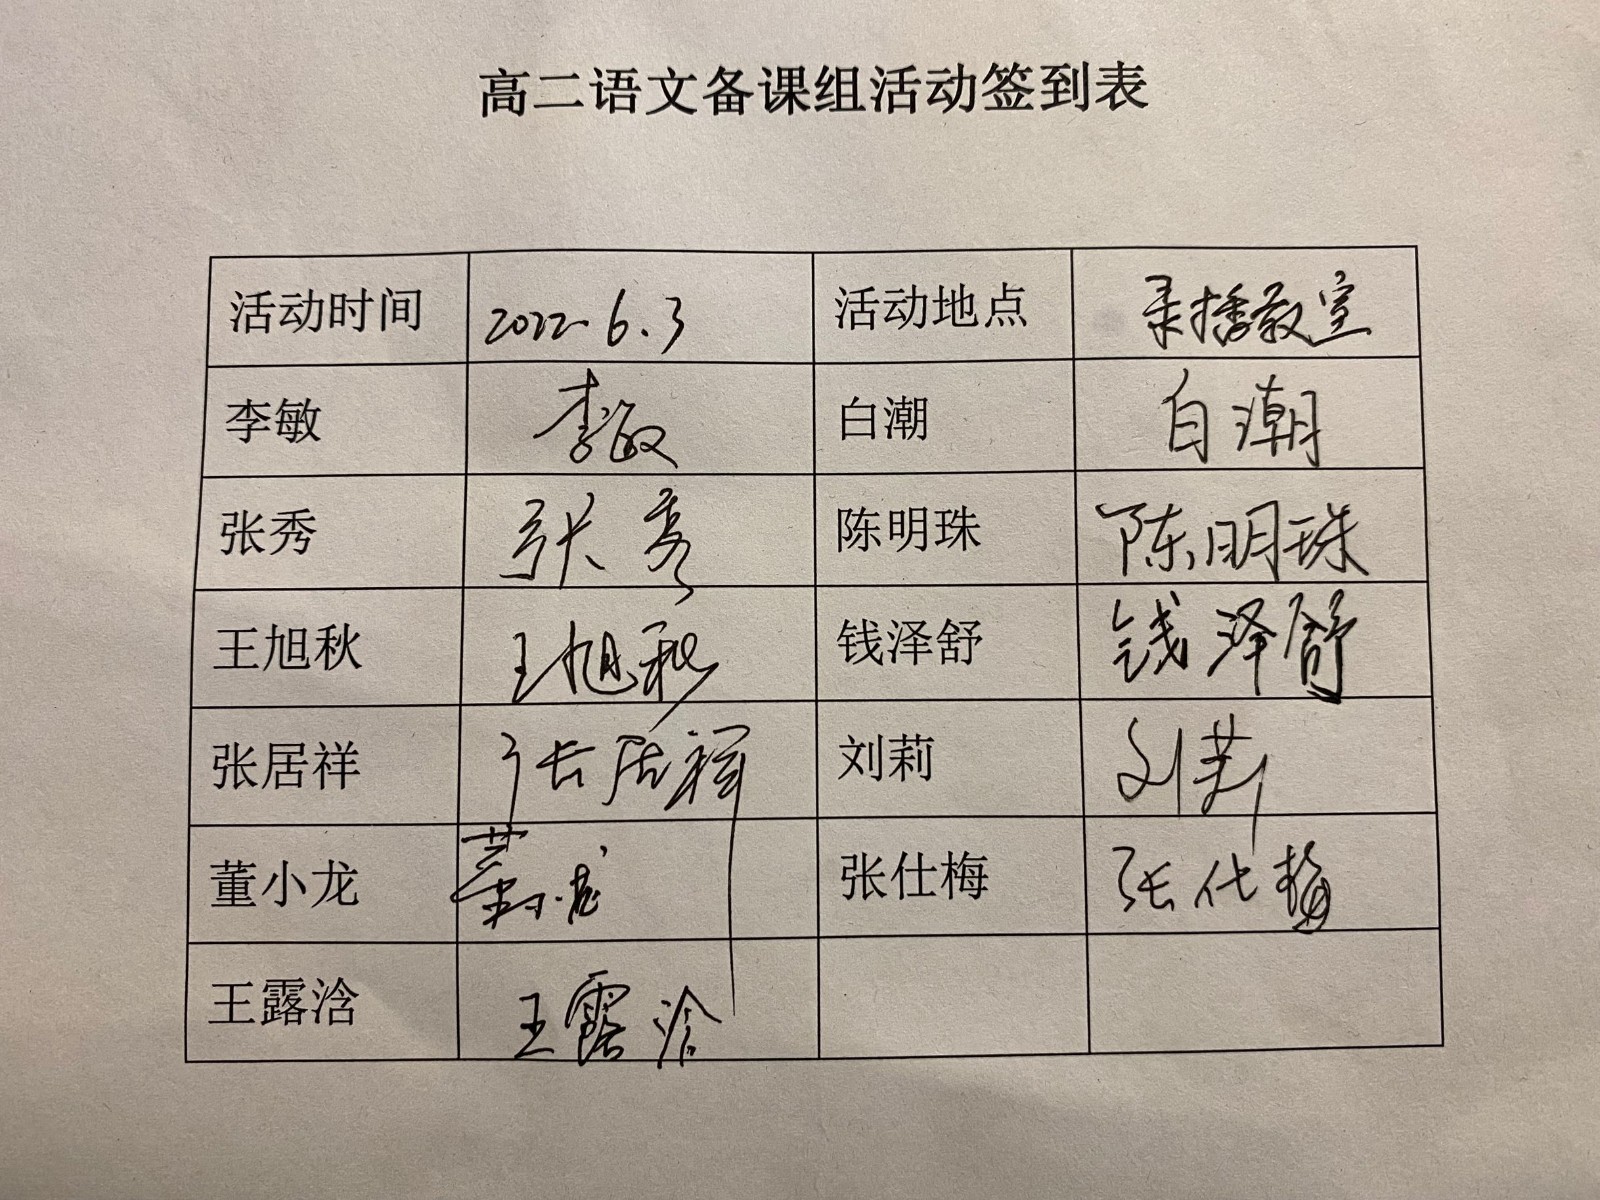 高二语文备课组活动签到表
活动时间 2022.6.3 活动地点 录播教室
李敏 李敏 白潮 白潮
张秀 张秀 陈明珠 陈明珠
王旭秋 王旭秋 钱泽舒 钱泽舒
张居祥 张居祥 刘莉 刘莉
董小龙 董小龙 张仕梅 张仕梅
王露浛 王露浛